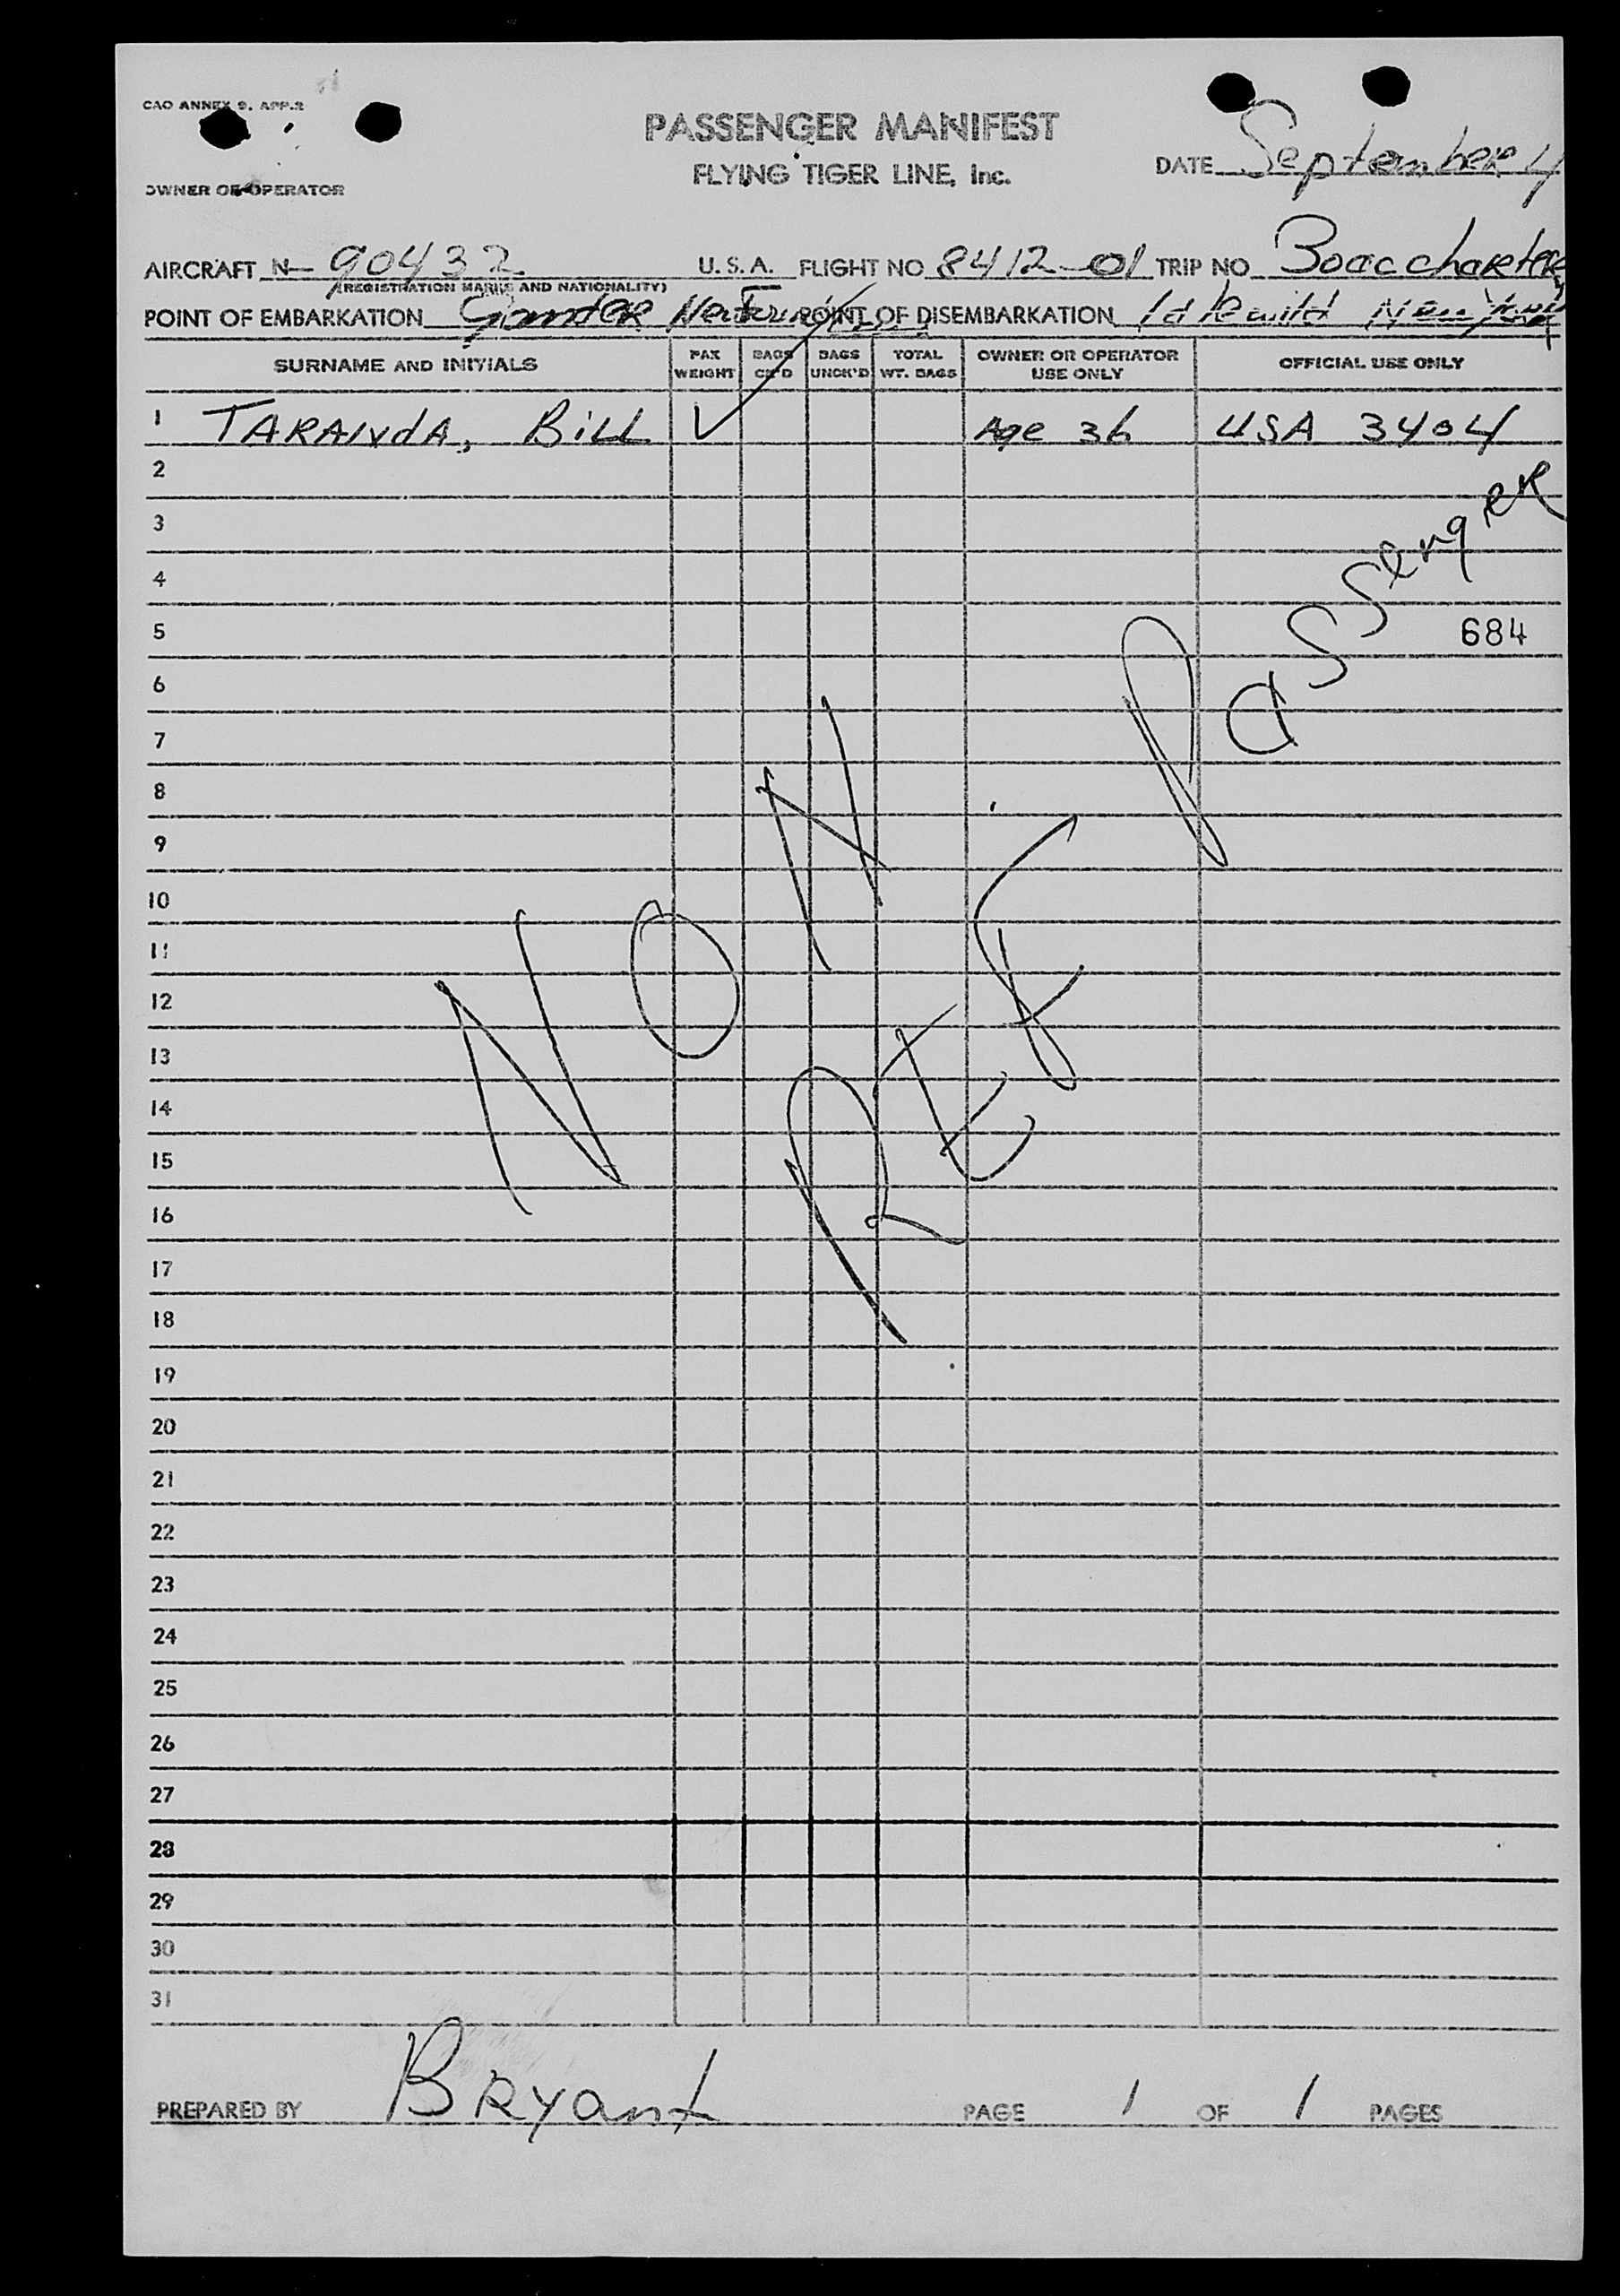 CAO ANNEX 9. APP.2
PASSENGER MANIFEST
FLYING TIGER LINE, Inc.
DATE September 4
OWNER OR OPERATOR
AIRCRAFT N- 90432 U.S.A. FLIGHT NO 8412-01 TRIP NO Boac charter
(REGISTRATION MARKS AND NATIONALITY)
POINT OF EMBARKATION Gander POINT OF DISEMBARKATION Idlewild New York
SURNAME AND INITIALS PAX WEIGHT BAGS CK'D BAGS UNCK'D TOTAL WT. BAGS OWNER OR OPERATOR USE ONLY OFFICIAL USE ONLY
1 TARANdA, Bill Age 36 USA 3404
2
3
4
5 684
6
7
8
9
10
11
12
13
14
15
16
17
18
19
20
21
22
23
24
25
26
27
28
29
30
31
NON
REV Passenger
PREPARED BY Bryant PAGE 1 OF 1 PAGES